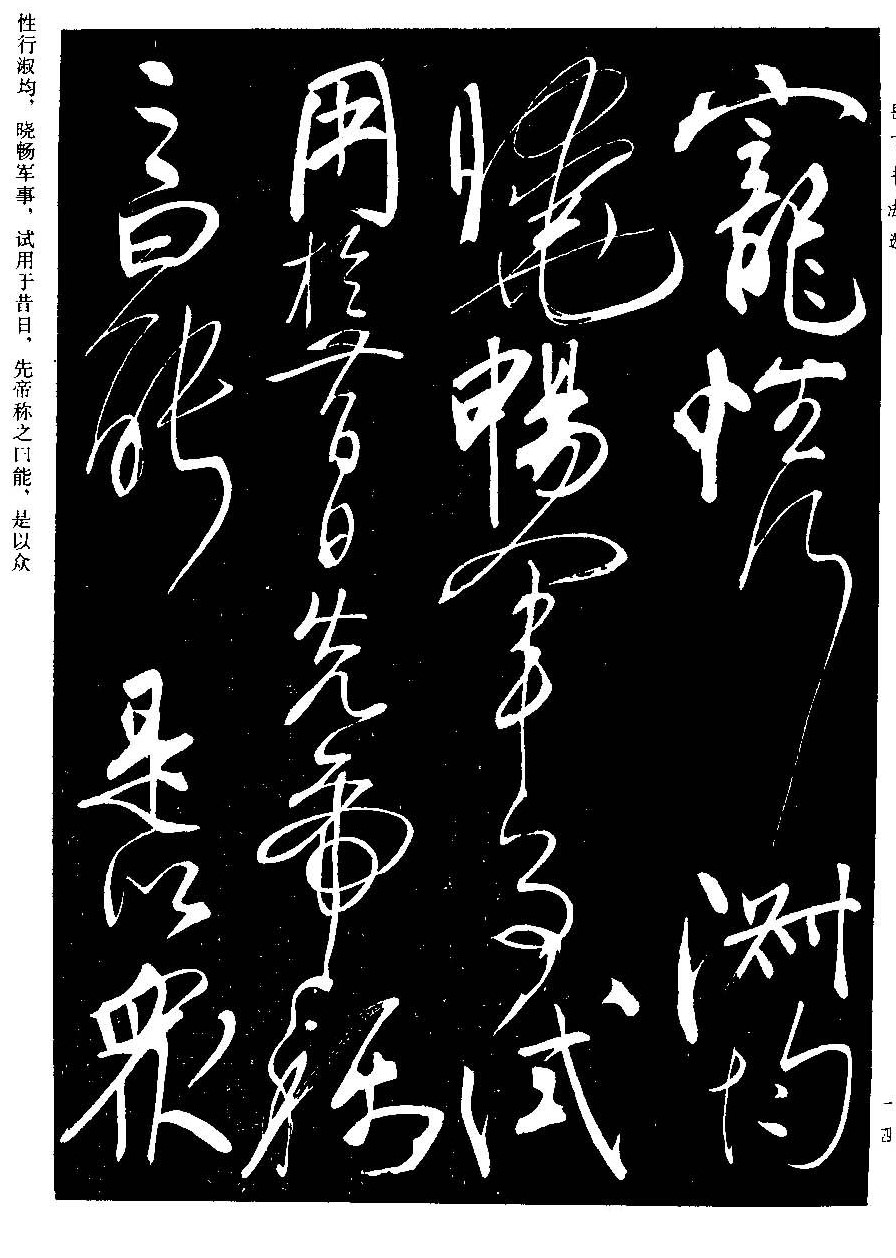 一四
寵性行淑均
曉暢軍事試
用於昔日先帝稱
之曰能是以衆
性行淑均，晓畅军事，试用于昔日，先帝称之曰能，是以众